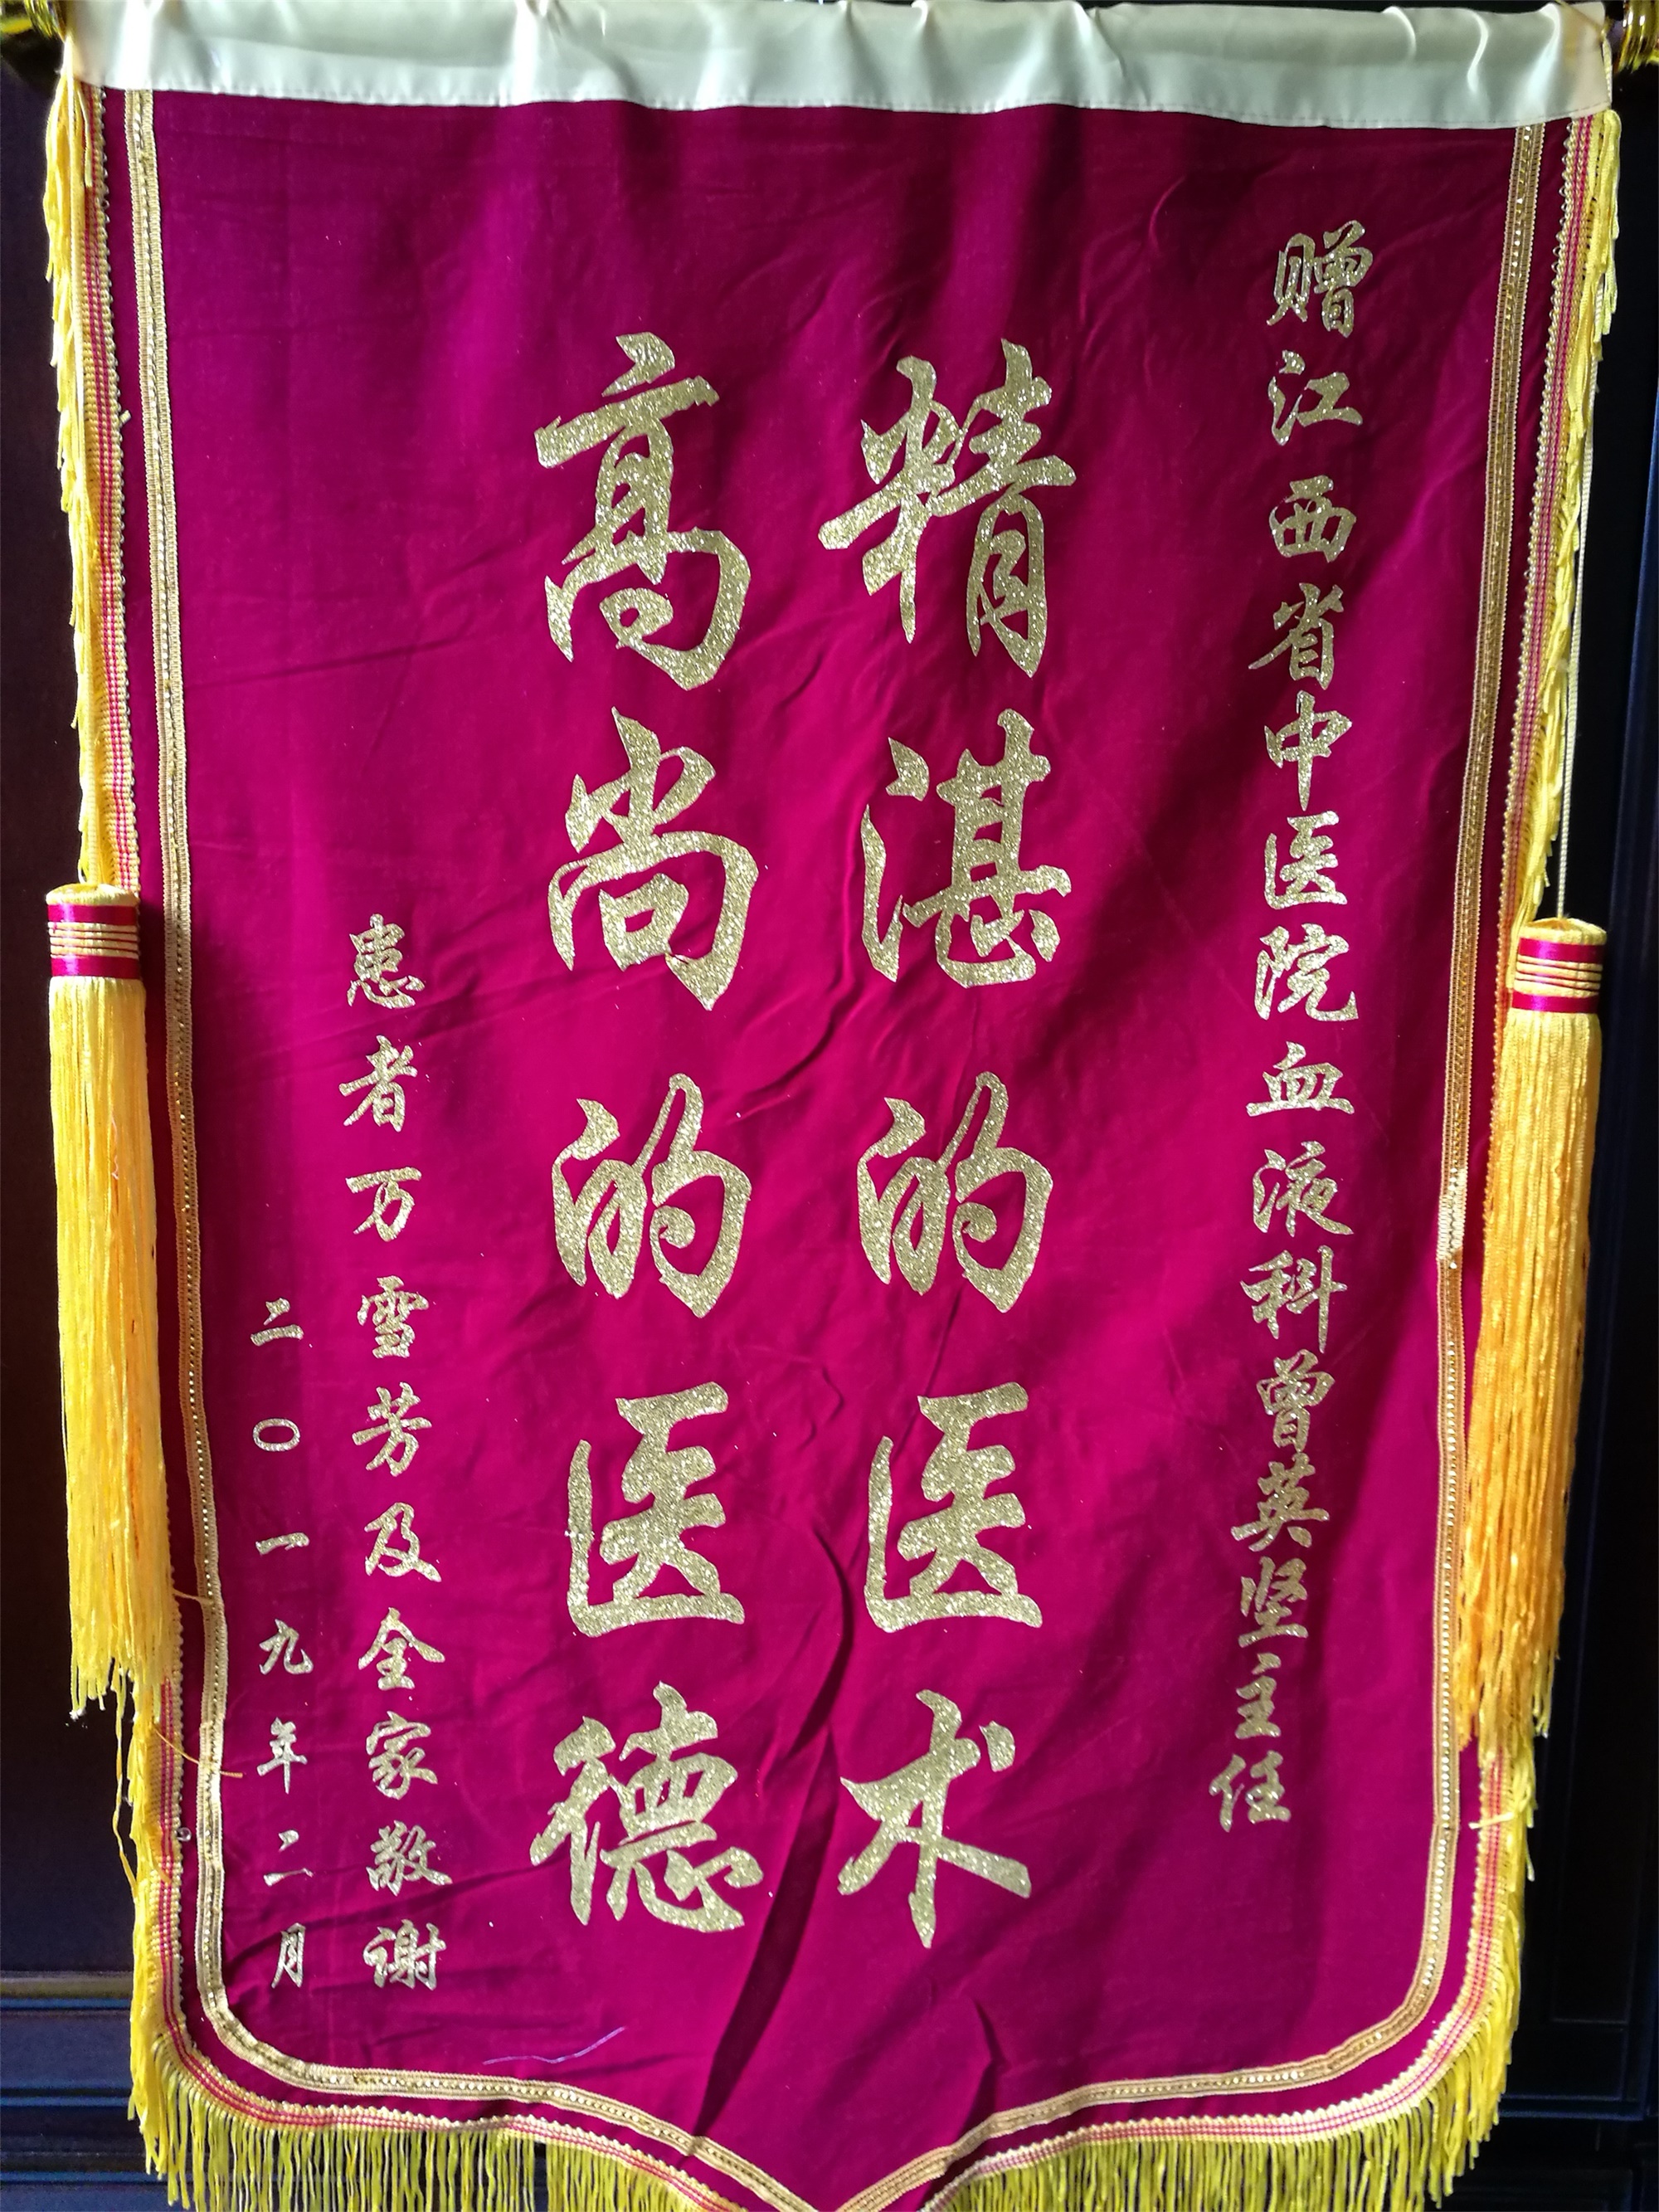 赠江西省中医院血液科曾英坚主任
精湛的医术
高尚的医德
患者万雪芳及全家敬谢
二〇一九年二月